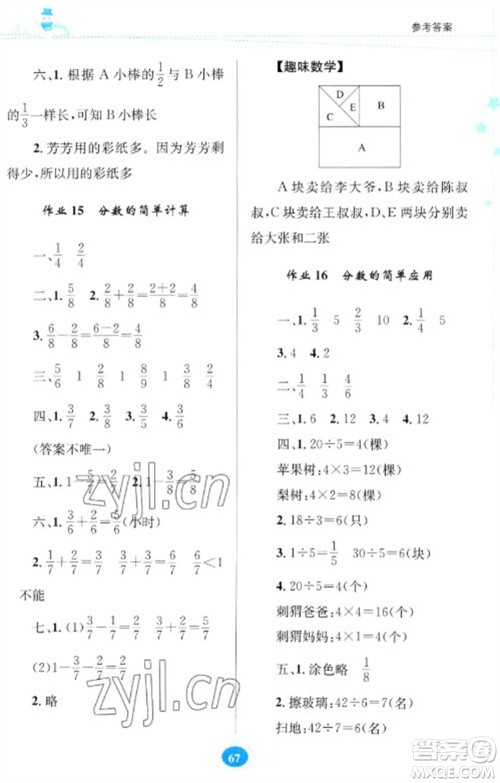 参考答案
六、1. 根据 A 小棒的1/2与 B 小棒
的1/3一样长，可知 B 小棒长
2. 芳芳用的彩纸多。因为芳芳剩
得少，所以用的彩纸多
作业 15 分数的简单计算
一、1/4 2/4 3/4
二、1. 5/8 2. 2/8+2/8=(2+2)/8=4/8
3. 6/8-2/8=(6-2)/8=4/8
三、5/6 1/2 1 8/9 1/8 1
(答案不唯一)
五、1. 1-5/7=2/7
六、1. 3/6+2/6=5/6(小时)
2. 1/7+2/7=3/7 3/7+3/7=6/7 6/7<1
不能
七、1. (1)3/7-1/7=2/7
2. 略
67
【趣味数学】
D
E
B
C
A
A 块卖给李大爷，B 块卖给陈叔
叔，C 块卖给王叔叔，D、E 两块分别卖
给大张和二张
作业 16 分数的简单应用
一、1. 1/3 5 2/3 10 2. 1/4 5
3. 4 4. 2
二、1/3 1/4 1/5
三、1. 6 2. 12
四、1. 20÷5=4(棵)
苹果树：4×3=12(棵)
梨树：4×2=8(棵)
2. 18÷3=6(个)
3. 1÷5=1/5 30÷5=6(块)
4. 20÷5=4(个)
刺猬爸爸：4×4=16(个)
刺猬妈妈：4×1=4(个)
五、1. 涂色略 1/8
2. 擦玻璃：42÷6=7(名)
扫地：42÷7=6(名)
zyjl.cn
zyjl.cn
答案圈
MXQE.COM